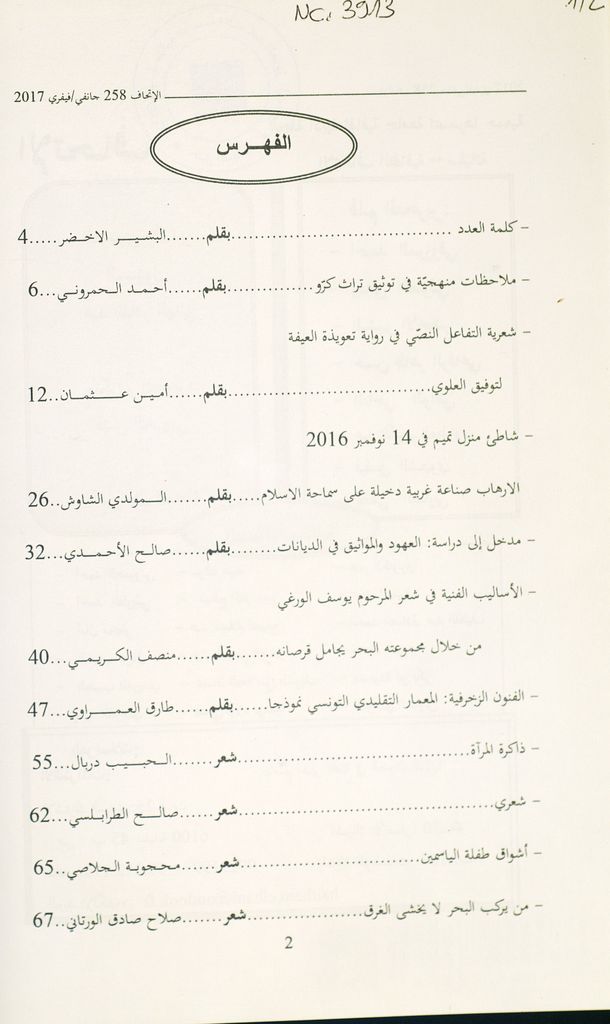 NC. 3913
الإتحاف 258 جانفي/فيفري 2017
الفهـــرس
- كلمة العدد ..................................بقلم......البشيـــر الاخضر.....4
- ملاحظات منهجيّة في توثيق تراث كرّو...............بقلم......أحمـد الـحمرونـي...6
- شعرية التفاعل النصّي في رواية تعويذة العيفة
لتوفيق العلوي................................بقلم......أمين عـــثـمــان..12
- شاطئ منزل تميم في 14 نوفمبر 2016
الارهاب صناعة غربية دخيلة على سماحة الاسلام.....بقلم.......الــمولدي الشاوش..26
- مدخل إلى دراسة: العهود والمواثيق في الديانات........بقلم......صالـح الأحـمـدي...32
- الأساليب الفنية في شعر المرحوم يوسف الورغي
من خلال مجموعته البحر يجامل قرصانه.......بقلم......منصف الكـريـمـي...40
- الفنون الزخرفية: المعمار التقليدي التونسي نموذجا......بقلم......طارق العمــراوي...47
- ذاكرة المرآة.....................................شعر.......الـحبـيـب دربال...55
- شعري..........................................شعر......صالـــح الطرابـلسي...62
- أشواق طفلة الياسمين.............................شعر......مـحجوبـة الـجلاصي..65
- من يركب البحر لا يخشى الغرق....................شعر.......صلاح صادق الورتاني..67
2